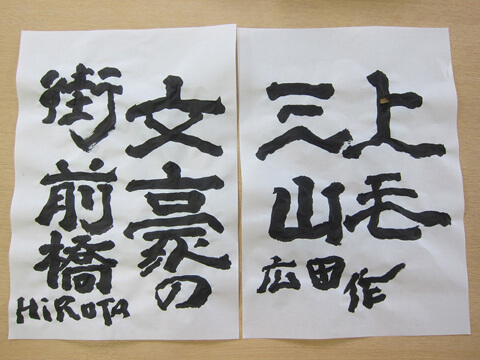 上毛
三山
広田作
文豪の
街前橋
HiROTA